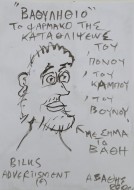 "ΒΑΘΥΛΗΘΙΟ"
ΤΟ ΦΑΡΜΑΚΟ ΤΗΣ
ΚΑΤΑΘΛΙΨΕΩΣ
ΤΟΥ
ΠΟΝΟΥ
ΤΟΥ
ΚΑΜΠΟΥ
ΤΟΥ
ΒΟΥΝΟΥ
ΜΕ ΣΗΜΑ
ΤΟ
ΒΑΘΗ
BILKS
ADVERTISMENT